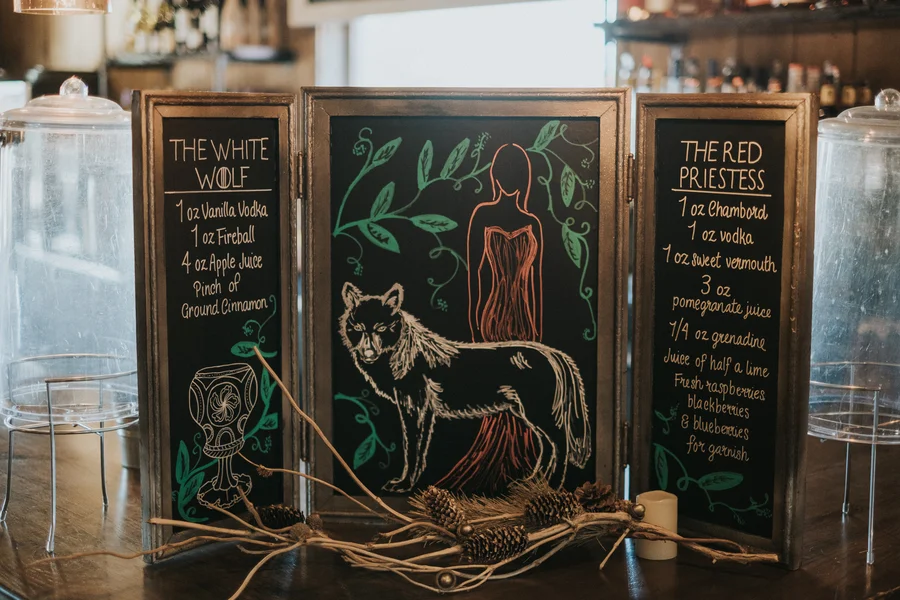 THE WHITE
WOLF
1 oz Vanilla Vodka
1 oz Fireball
4 oz Apple Juice
Pinch of
Ground Cinnamon
THE RED
PRIESTESS
1 oz Chambord
1 oz vodka
1 oz sweet vermouth
3 oz
pomegranate juice
1/4 oz grenadine
Juice of half a lime
Fresh raspberries
blackberries
& blueberries
for garnish